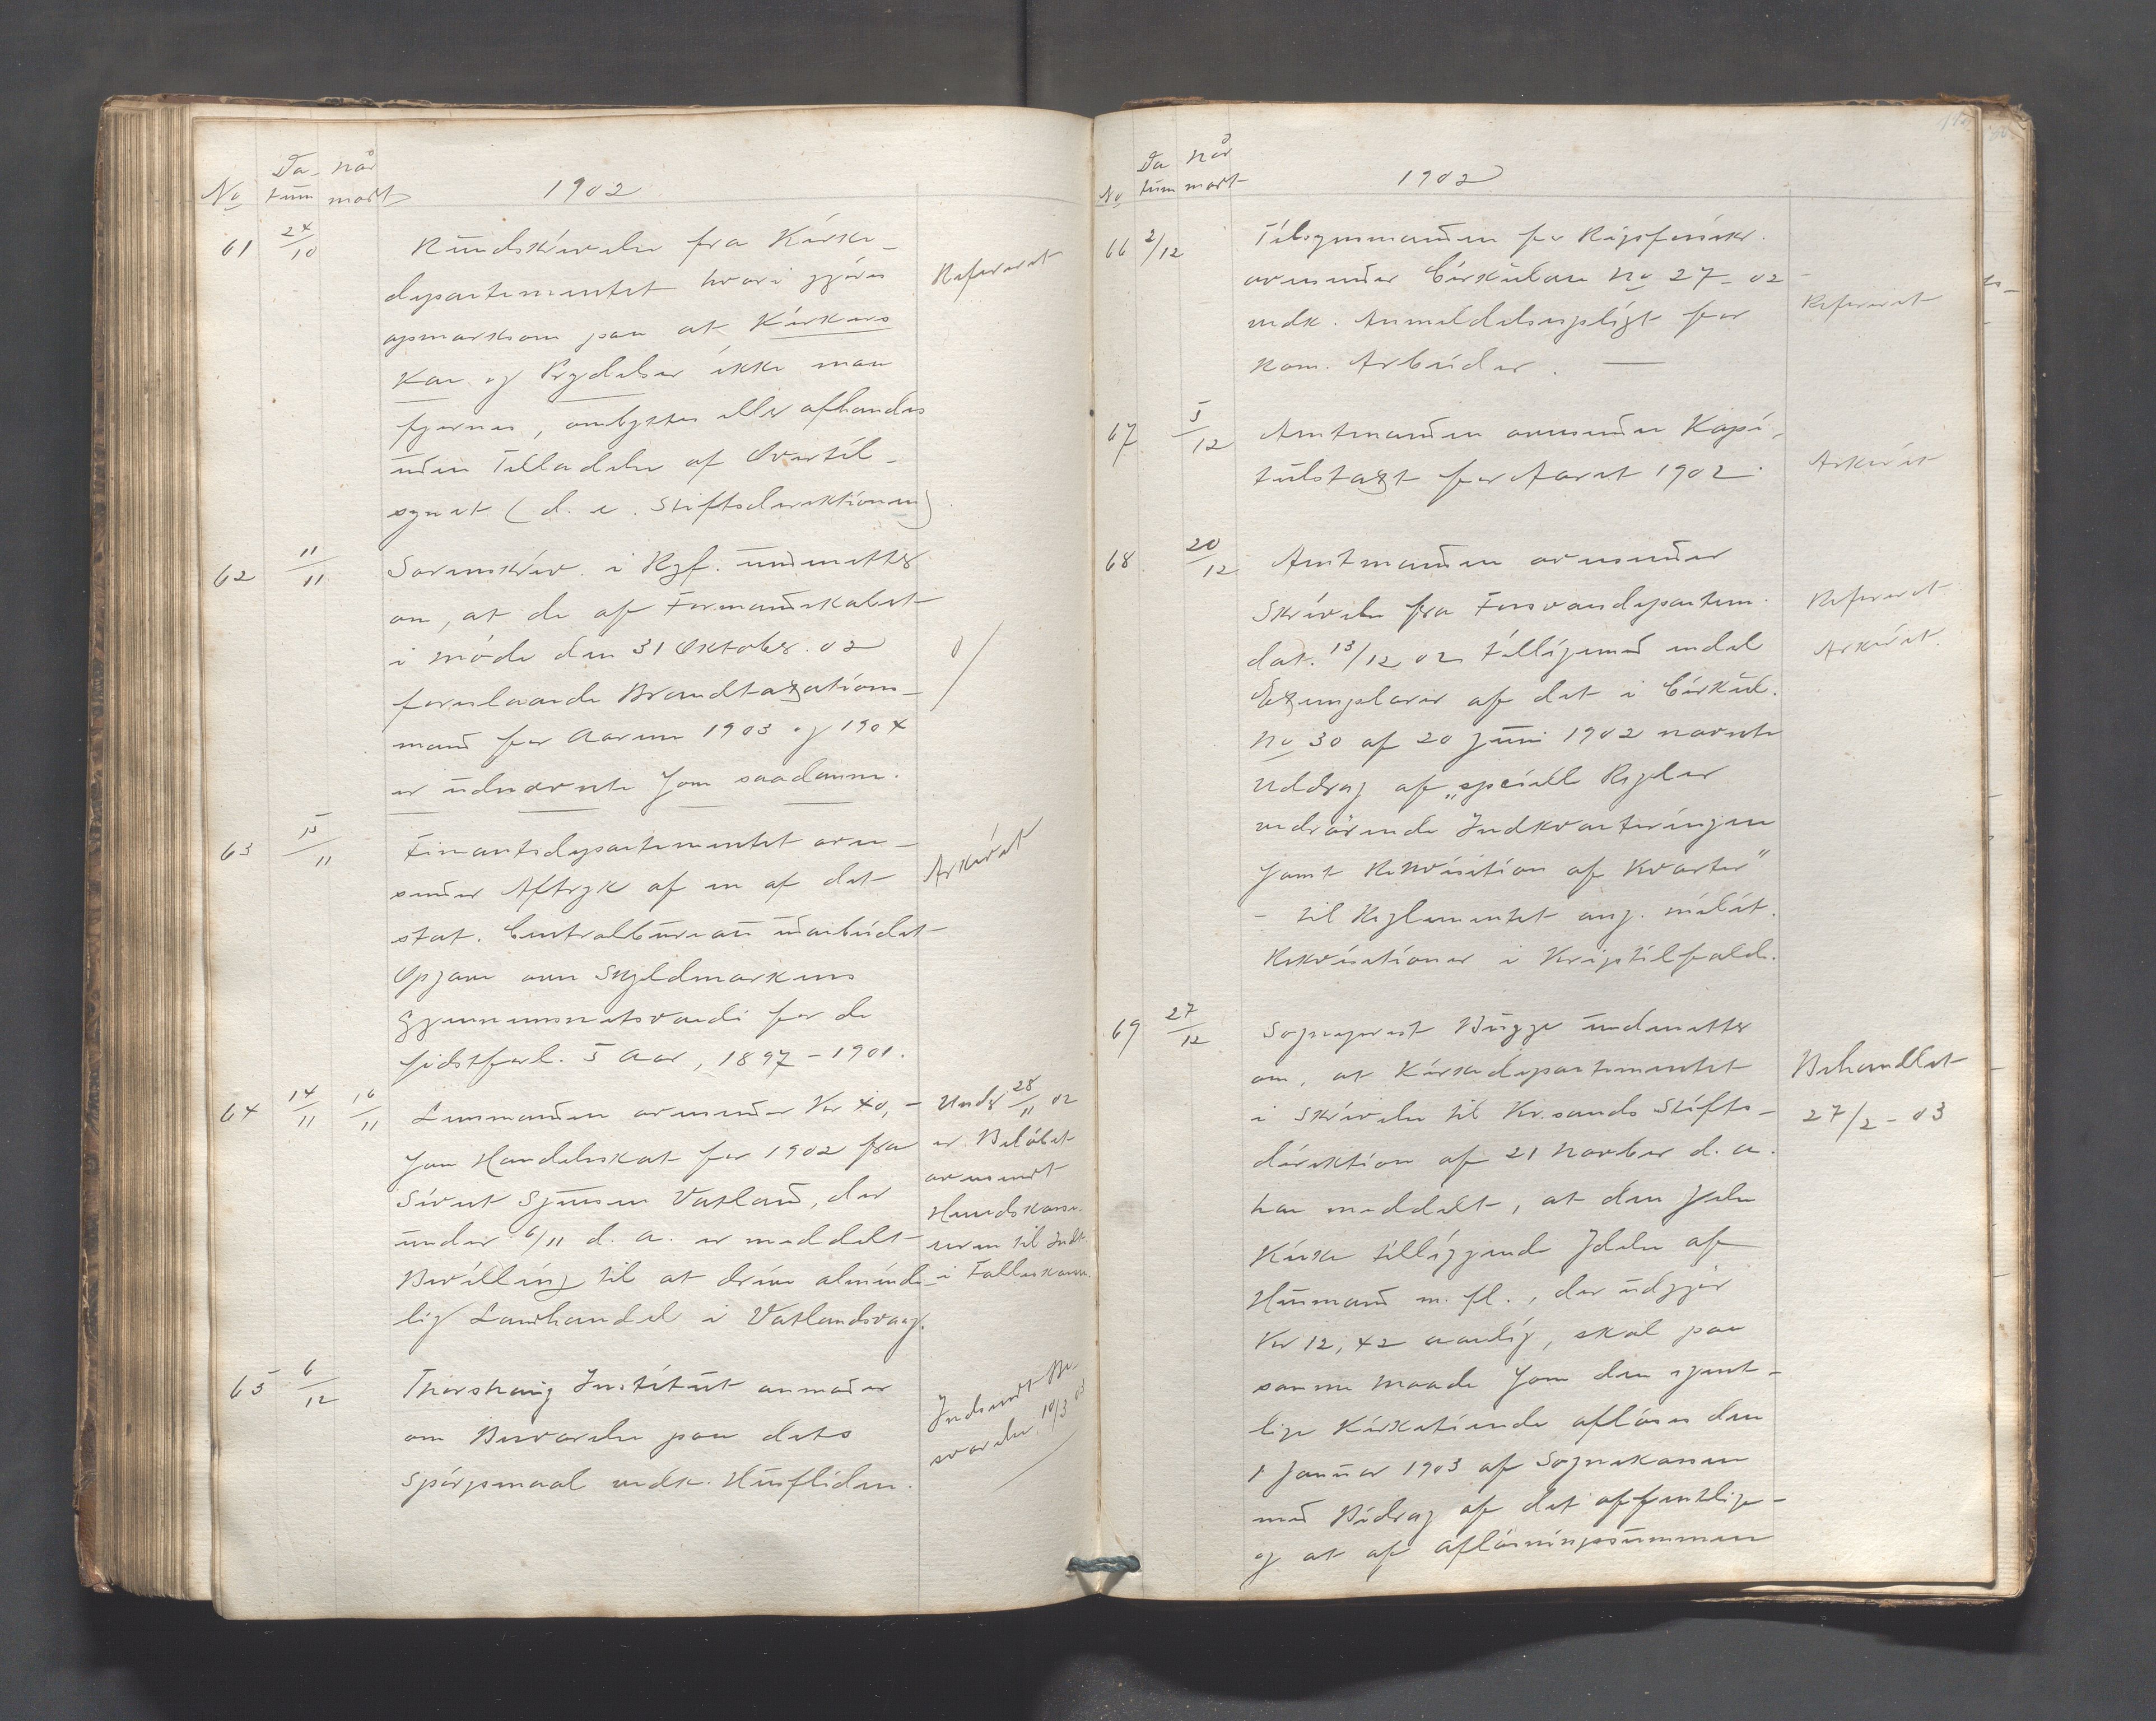 No Da- når
tum modt 1902
61 24/10 Rundskrivelse fra Kirke-
departementet hvori gjøres
opmerksom paa at Kirkers
Kar og Prydelser ikke maa
fjernes, ombyttes eller afhændes
uden Tilladelse af Overtil-
synet (d. e. Stiftsdirektionen)
Refereret
62 11/11 Sorenskriv. i Ryf. underretter
om, at de af Formandskabet
i møde den 31 Oktober 02
foreslaaede Brandtaxations-
mænd for Aarene 1903 og 1904
er udnævnte som saadanne.
0/
63 15/11 Finantsdepartementet over-
sender Aftryk af en af det
stat. Centralbureau udarbeidet
Opgave over Skyldmarkens
Gjennemsnitsværdi for de
sidstforl. 5 Aar, 1897-1901.
Arkivet
64 14/11 16/11 Lensmanden oversender Kr 40,-
som Handelsskat for 1902 fra
Sivert Sjursen Vatland, der
under 6/11 d. A. er meddelt
Bevilling til at drive alminde-
lig Landhandel i Vatlandsvaag.
Under 28/11 02
er Beløbet
oversendt
Herredskasse-
reren til Indt.
i Fælleskassen.
65 6/12 Thorshaug Institut anmoder
om Besvarelse paa dets
Spørgsmaal vedk. Husfliden.
Indsendt Be-
svarelse 10/3 03
No Da når
tum modt 1902
66 2/12 Tilsynsmanden for Rigsforsikr.
oversender Cirkulære No 27-02
vedk. Anmeldelsespligt for
Kom. Arbeider.
Refereret
67 5/12 Amtmanden oversender Kapi-
tulstaxt for Aaret 1902.
Arkivet
68 20/12 Amtmanden oversender
Skrivelse fra Forsvarsdepartem.
dat. 13/12 02 tilligemed endel
Exemplarer af det i Cirkul.
No 30 af 20 Juni 1902 nævnte
Uddrag af „specielle Regler
vedrørende Indkvarteringen
samt Rekvisition af Kvarter"
- til Reglementet ang. milit.
Rekvisitioner i Krigstilfælde.
Refereret
Arkivet.
69 27/12 Sogneprest Bugge underretter
om, at Kirkedepartementet
i Skrivelse til Kr.sands Stifts-
direktion af 21 Novber d. A.
har meddelt, at den
Kirke tilliggende Ydelse af
Husmænd m. fl., der udgjør
Kr 12,42 aarlig, skal paa
samme Maade som den egent-
lige Kirketiende afløses den
1 Januar 1903 af Sognekassen
med Bidrag af det offentlige-
og at af afløsningssummen
Behandlet
27/2-03